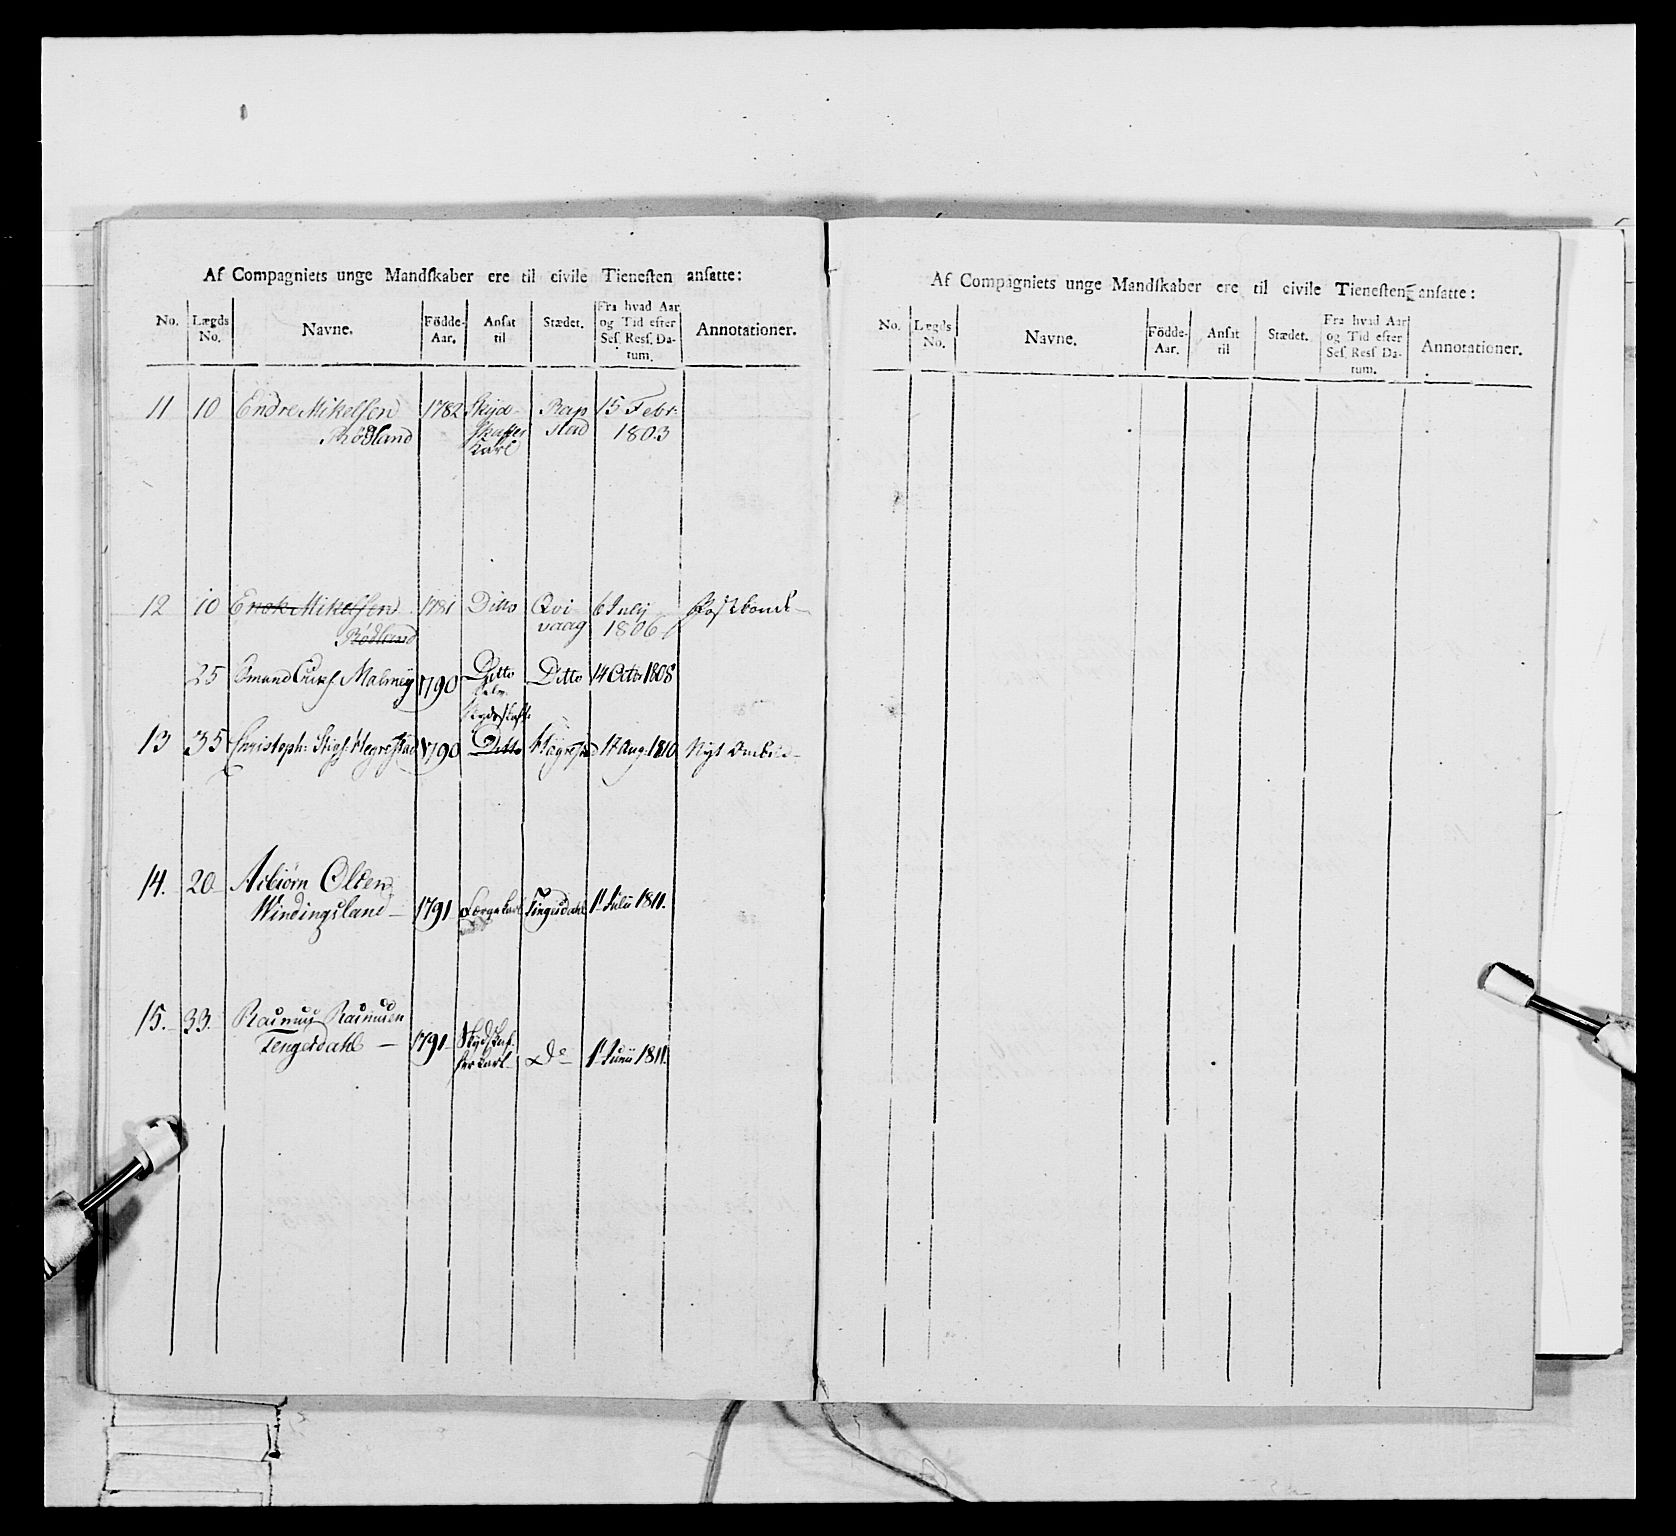 Af Compagniets unge Mandſkaber ere til civile Tieneſten anſatte:
No. Lægds No. Navne. Födde-Aar. Anſat til Stædet. Fra hvad Aar og Tid efter Seſ. Reſſ. Da-tum. Annotationer.
11 10 Endre Mikelsen 1782 Skyds- Rap 15 Febr:
Rödland skaffer stad 1803
Karl
12 10 Enok Mikelsen 1781 Ditto Qvi 6 July Postbonde
Rödland vaag 1806
25 Omund Malmey 1790 Ditto Ditto 14 Octbr 1808
13 35 Christoph: Stigs: Hegrestad 1790 Ditto Högrestad 17 Aug: 1810 Nyt
14. 20 Asbiörn Olsen
Windingsland 1791 Færgekarl Tingesdahl 1 Julii 1811.
15. 33. Rasmus Rasmusen
Tengesdahl 1791 Skydskaf-
ferkarl Do 1 Junii 1811.
Af Compagniets unge Mandſkaber ere til civile Tieneſten anſatte:
No. Lægds No. Navne. Födde-Aar. Anſat til Stædet. Fra hvad Aar og Tid efter Seſ. Reſſ Da-tum. Annotationer.